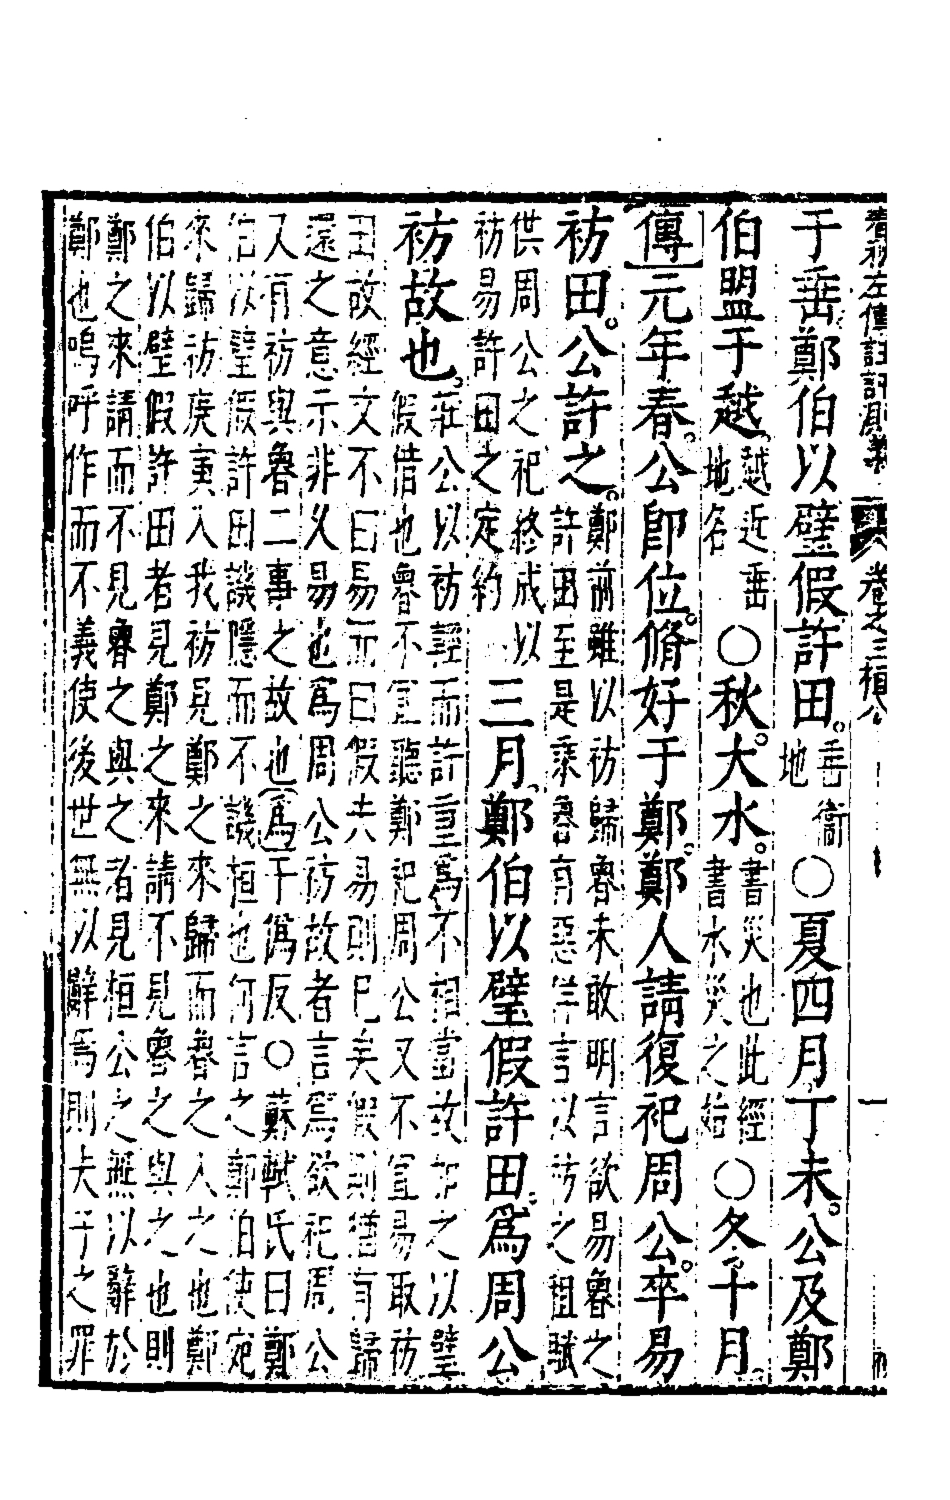 春秋左傳註評測義 卷之三桓公 一
于垂鄭伯以璧假許田。垂衞地○夏四月丁未。公及鄭
伯盟于越。越近垂地名○秋。大水。書災也此經書水災之始○冬十月。
傳元年春。公卽位。脩好于鄭。鄭人請復祀周公。卒易
祊田。公許之。鄭前雖以祊歸魯未敢明言欲易魯之
許田至是乘魯有惡詳言以祊之祖賦
供周公之祀終成以
祊易許田之定約
三月。鄭伯以璧假許田。爲周公
祊故也。莊公以祊輕而許重爲不相當故加之以璧
假借也魯不宜聽鄭祀周公又不宜易取祊
田故經文不曰易而曰假夫易則已矣假則猶有歸
還之意示非久易也爲周公祊故者言爲欲祀周公
又有祊與魯二事之故也爲于僞反○蘇軾氏曰鄭
伯以璧假許田譏隱而不譏桓也何言之鄭伯使宛
來歸祊庚寅入我祊見鄭之來歸而魯之入之也鄭
伯以璧假許田者見鄭之來請不見魯之與之也則
鄭之來請而不見魯之與之者見桓公之無以辭於
鄭也嗚呼作而不義使後世無以辭焉則夫子之罪